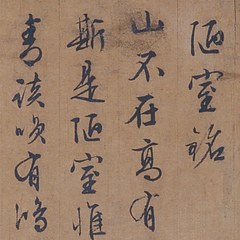 陋室銘
山不在高有
斯是陋室惟
青談咲有鴻